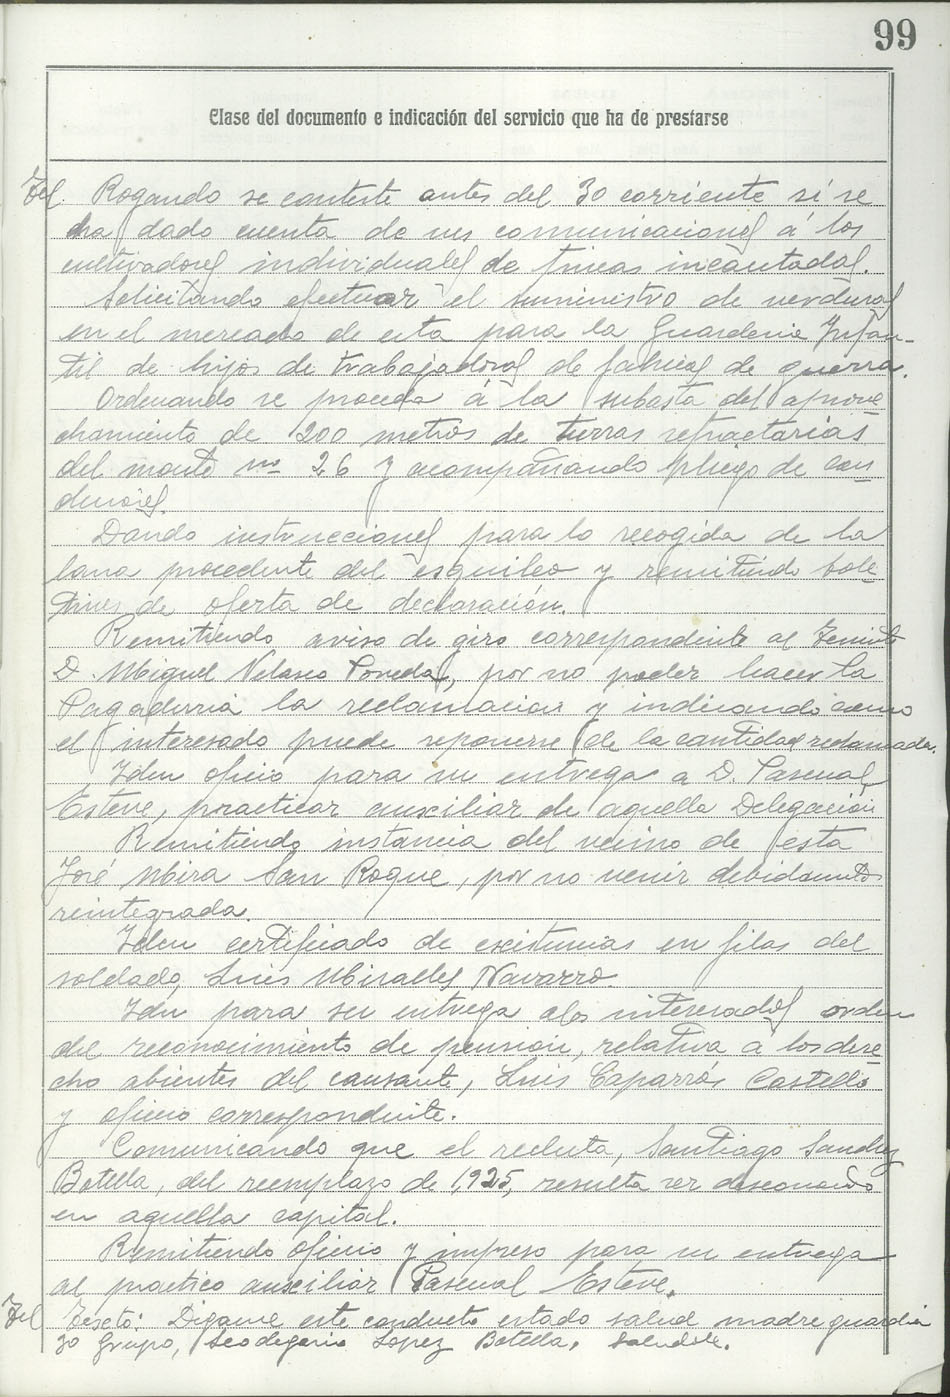 99
Clase del documento e indicación del servicio que ha de prestarse
Tel. Rogando se conteste antes del 30 corriente si se
ha dado cuenta de sus comunicaciones á los
cultivadores individuales de fincas incautadas.
Solicitando efectuar el suministro de verduras
en el mercado de esta para la Guarderia Infan-
til de hijos de trabajadores de fabricas de guerra.
Ordenando se proceda á la subasta del aprove
chamiento de 200 metros de tierras refractarias
del monte nº 26 y acompañando pliego de con
diciones.
Dando instrucciones para la recogida de la
lana procedente del esquileo y remitiendo bole
tines de oferta de declaración.
Remitiendo aviso de giro correspondiente al Teniente
D. Miguel Velasco Poveda, por no poder hacer la
Pagaduria la reclamacion y indicando como
el interesado puede reponerse de la cantidad reclamada.
Iden oficio para su entrega a D. Pascual
Esteve, practicar auxiliar de aquella Delegación
Remitiendo instancia del vecino de esta
José Mira San Roque, por no venir debidamente
reintegrada.
Iden certificado de existencias en filas del
soldado, Luis Miralles Navarro.
Iden para su entrega alos interesados orden
del reconocimiento de pension, relativa a los dere
cho abientes del causante, Luis Caparrós Castelló
y oficio correspondiente.
Comunicando que el recluta, Santiago Sanchez
Botella, del reemplazo de 1,925, resulta ser desconocido
en aquella capital.
Remitiendo oficio y impreso para su entrega
al practico auxiliar Pascual Esteve.
Tel Texto: Digame este conducto estado salud madre guardia
30 Grupo, Leodegario Lopez Botella. Saludole.